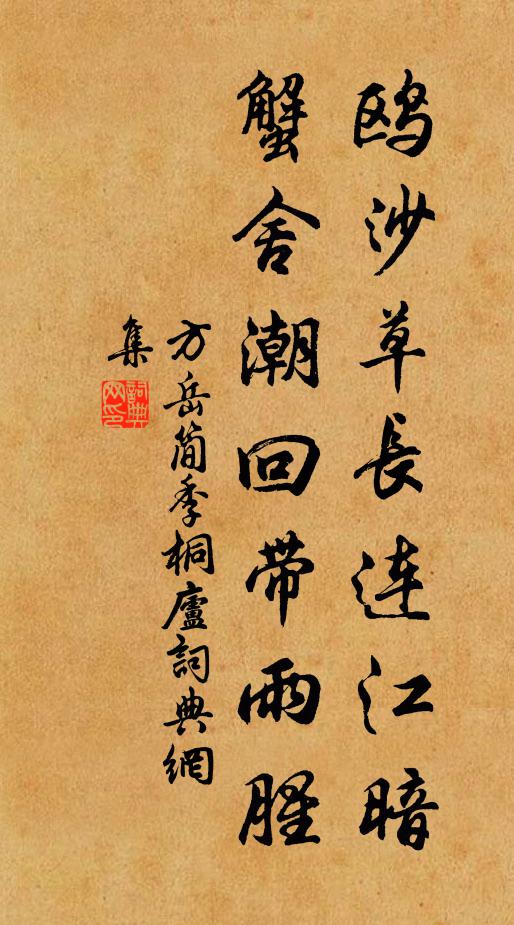 鸥沙草長連江暗
蟹舍潮回带雨腥
方岳簡季桐廬詞典網
集
詞典網印